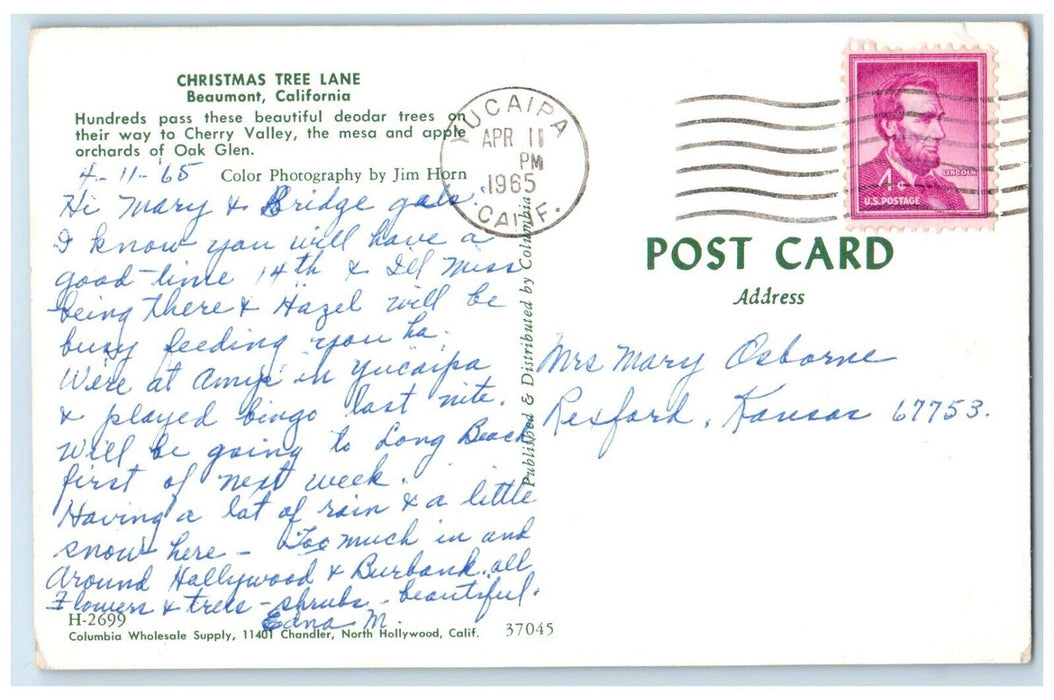 CHRISTMAS TREE LANE
Beaumont, California
Hundreds pass these beautiful deodar trees on
their way to Cherry Valley, the mesa and apple
orchards of Oak Glen.
Color Photography by Jim Horn
4-11-'65
Hi Mary & Bridge gals.
I know you will have a
good time 14th & I'll miss
being there & Hazel will be
busy feeding you ha.
We're at Amys' in Yucaipa
& played bingo last nite.
Will be going to Long Beach
first of next week.
Having a lot of rain & a little
snow here - Too much in and
around Hollywood & Burbank. all
Flowers & trees - shrubs - beautiful.
Edna M.
H-2699
Columbia Wholesale Supply, 11401 Chandler, North Hollywood, Calif.
37045
Published & Distributed by Columbia
YUCAIPA
APR 11
PM
1965
CALIF.
LINCOLN
4¢
U.S. POSTAGE
POST CARD
Address
Mrs Mary Osborne
Rexford, Kansas 67753.